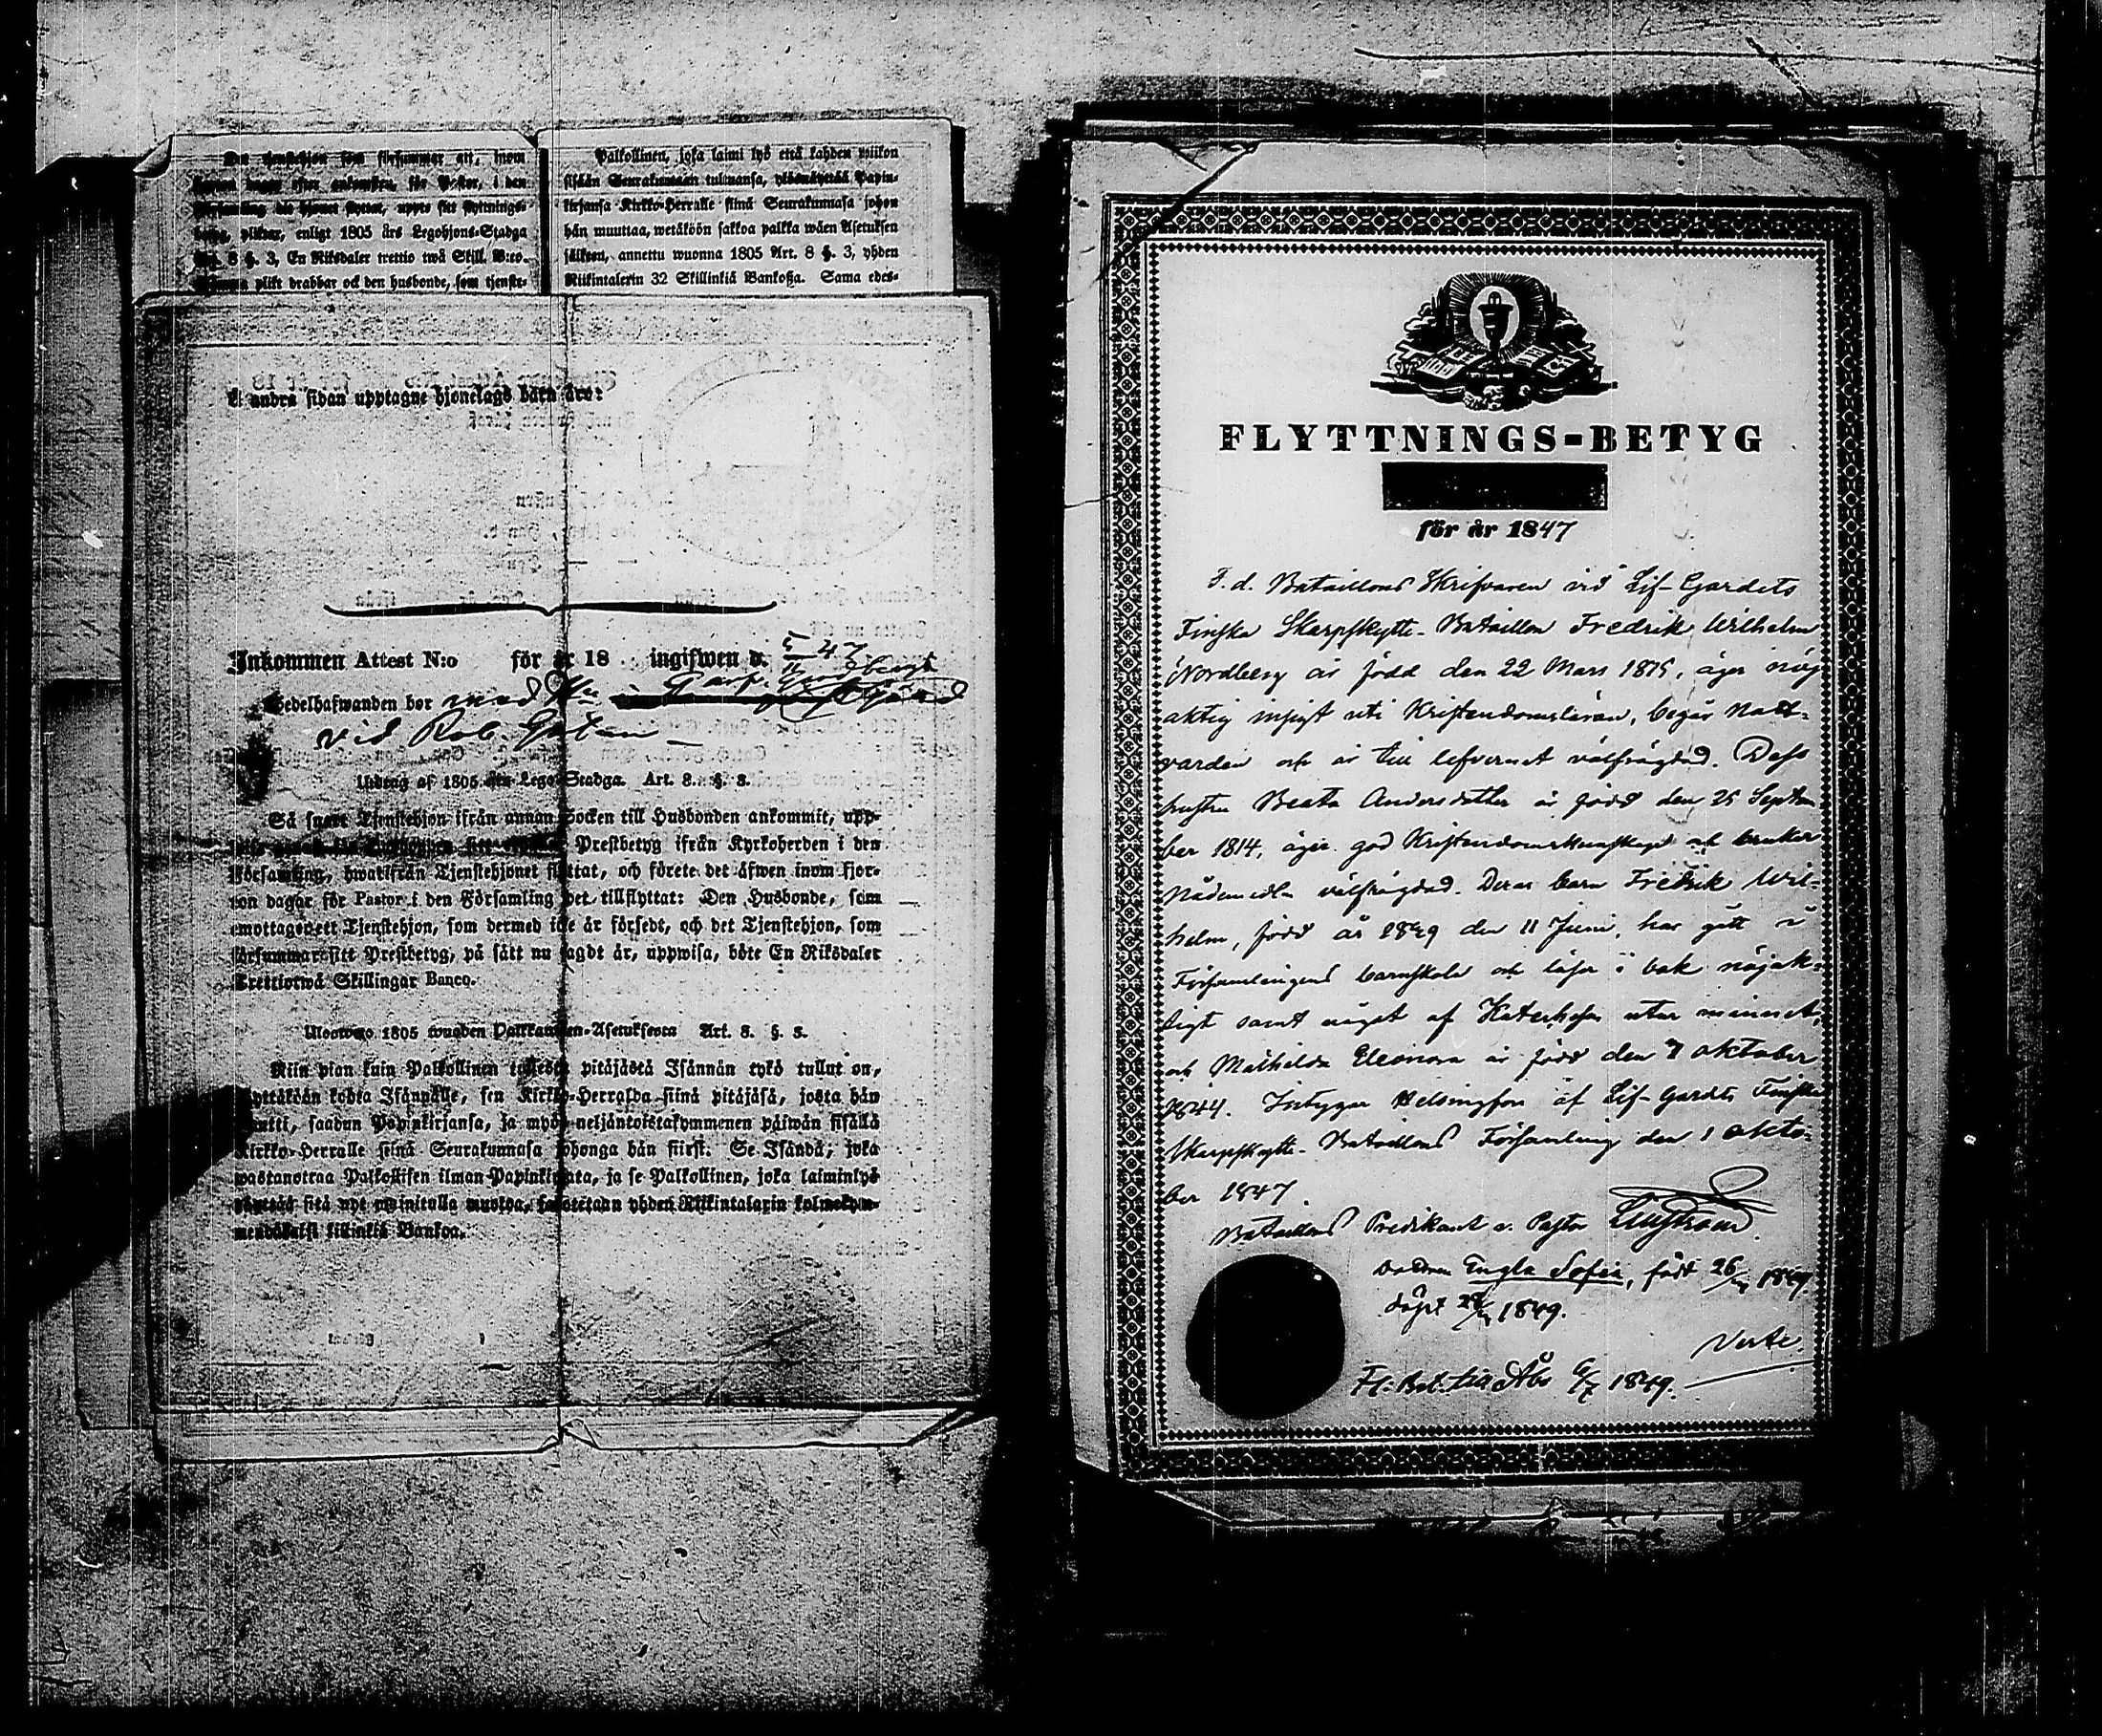 Den tjenstehjon som försummar att, inom
dagar efter ankomsten, för Pastor, i den
Församling dit hjonet flyttat, uppte sitt flyttnings-
betyg, pliktar, enligt 1805 års Legohjons-Stadga
Art. 8 §. 3, En Riksdaler trettio två Skill. B:co.
Samma plikt drabbar ock den husbonde, som tjenste-
Palkollinen, joka laimi lyö että kahden wiikon
sisään Seurakuntaan tultuansa, ylösnäyttää Papin-
kirjansa Kirkko-Herralle siinä Seurakunnasa johon
hän muuttaa, wetäköön sakkoa palkka wäen Asetuksen
jälken, annettu wuonna 1805 Art. 8 §. 3, yhden
Riikintalerin 32 Skillinkiä Bankoßa. Sama edes-
å andra sidan upptagne hjonelags barn äro:
Inkommen Attest N:o för år 18 ingifwen d. 5/11 47
Sedelhafwanden bor med
vid Rob. Gatan
Utdrag af 1805 års Lego-Stadga. Art. 8. §. 3.
Så snart Tjenstehjon ifrån annan Socken till Husbonden ankommit, upp-
Prestbetyg ifrån Kyrkoherden i den
Församling, hwarifrån Tjenstehjonet flyttat, och förete det äfwen inom fjor-
ton dagar för Pastor i den Församling det tillflyttat: Den Husbonde, som
emottager ett Tjenstehjon, som dermed icke är försedt, och det Tjenstehjon, som
försummar sitt Prestbetyg, på sätt nu sagdt är, uppwisa, böte En Riksdaler
Trettiotwå Skillingar Banco.
Ulosweto 1805 wuoden Palkkawäen-Asetuksesta Art. 8. §. 3.
Niin pian kuin Palkollinen toisesta pitäjästä Isännän tykö tullut on,
näyttäköön kohta Isännälle, sen Kirkko-Herralda siinä pitäjäsä, josta hän
muutti, saadun Papinkirjansa, ja myös neljäntoistakymmenen päiwän sisällä
Kirkko-Herralle siinä Seurakunnasa johonga hän siirsi. Se Isändä, joka
wastanottaa Palkollisen ilman Papinkirjata, ja se Palkollinen, joka laiminlyö
näyttää sitä nyt mainitulla muotoa, sakotetaan yhden Riikintalarin kolmekym-
mendäkaksi killinkiä Bankoa.
FLYTTNINGS-BETYG
för år 1847
F. d. Bataillons Skrifvaren vid Lif-Gardets
Finska Skarpskytte-Bataillon Fredrik Wilhelm
Nordberg är född den 22 Mars 1815, äger nöj-
aktig insigt uti Kristendomsläran, begår Natt-
varden och är till lefvernet välfrägdad. Dess
hustru Beata Andersdotter är född den 25 Septem-
ber 1814, äger god Kristendomskunskap och bruker
Nådemedlen välfrägdad. Deras barn Fredrik Wil-
helm, född år 1839 den 11 Juni, har gått i
Församlingens barnskola och läser i bok nöjak-
ligt samt något af Katekesen utur minnet,
och Mathilda Eleonora är född den 7 oktober
1844. Intygar Helsingfors af Lif-Gardets Finska
Skarpskytte-Bataillons Församling den 1 okto-
ber 1847.
Bataillons Predikant v. Pastor
Dottren Engla Sofia, född 26/ 1849.
döpt 1849.
Verte.
Fl. Bet. till Åbo 1849.